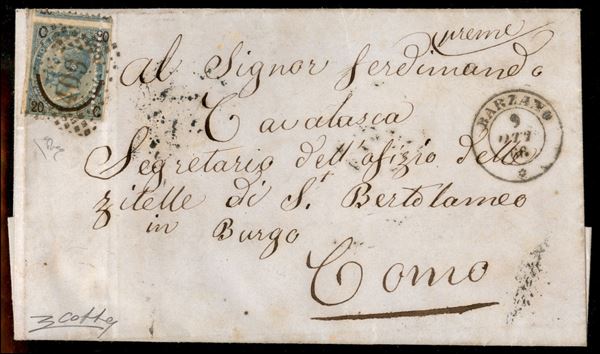 C 20
20 C
preme
Al Signor Ferdinando
Cavalasca
Segretario dell'ofizio delle
zitelle di S.t Bertolameo
in Burgo
Como
BARZANO
9
OTT
66